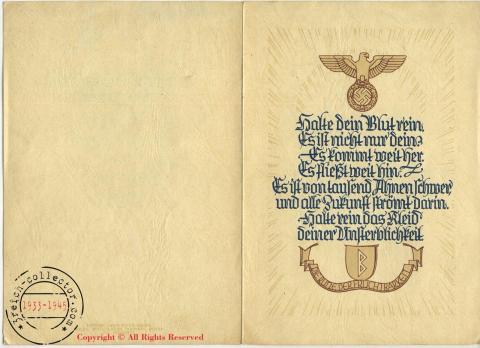 Halte dein Blut rein,
Es ist nicht nur dein
Es kommt weit her.
Es fließt weit hin.
Es ist von tausend Ahnen schwer
und alle Zukunft strömt darin.
Halte rein das Kleid
deiner Unsterblichkeit.
RUNE DER FRUCHTBARKEIT
3reich-collector.com
1933-1945
Copyright © All Rights Reserved